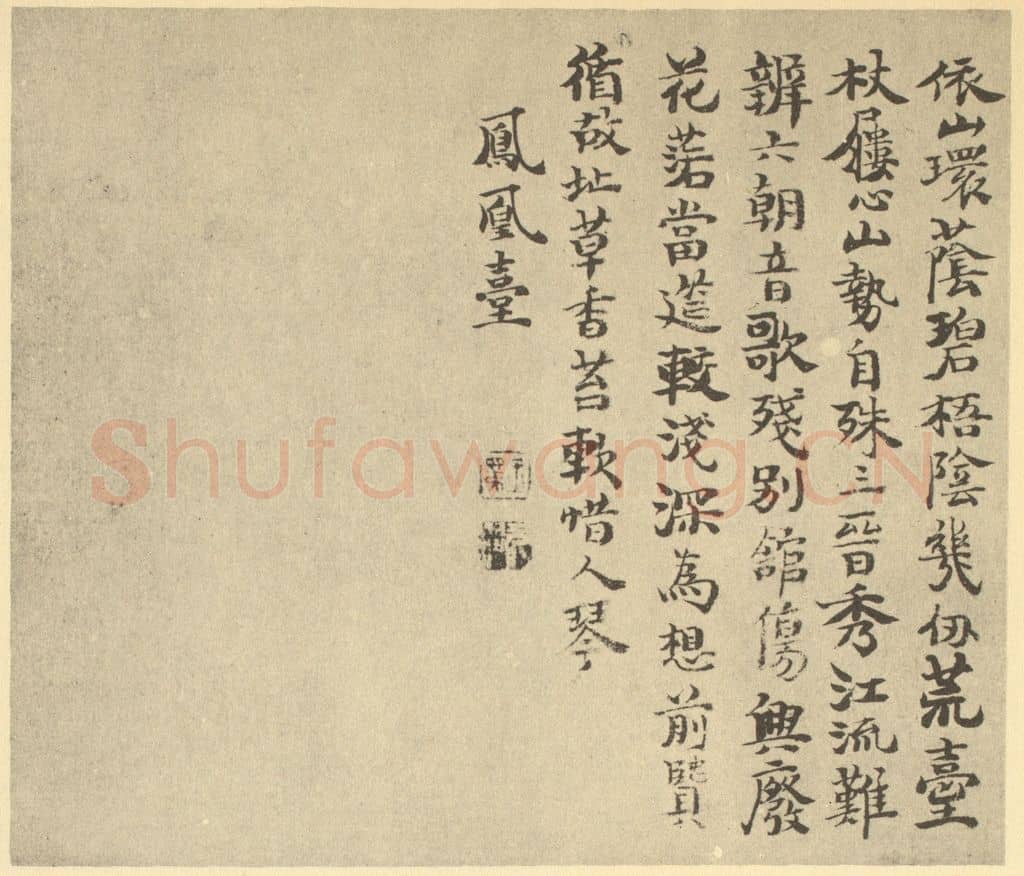 依山環蔭碧梧陰幾仞荒臺
杖屨心山勢自殊三晉秀江流難
辨六朝音歌殘別館傷興廢
花落當筵較淺深為想前賢
循故址草香苔軟惜人琴
鳳凰臺
Shufawang.CN